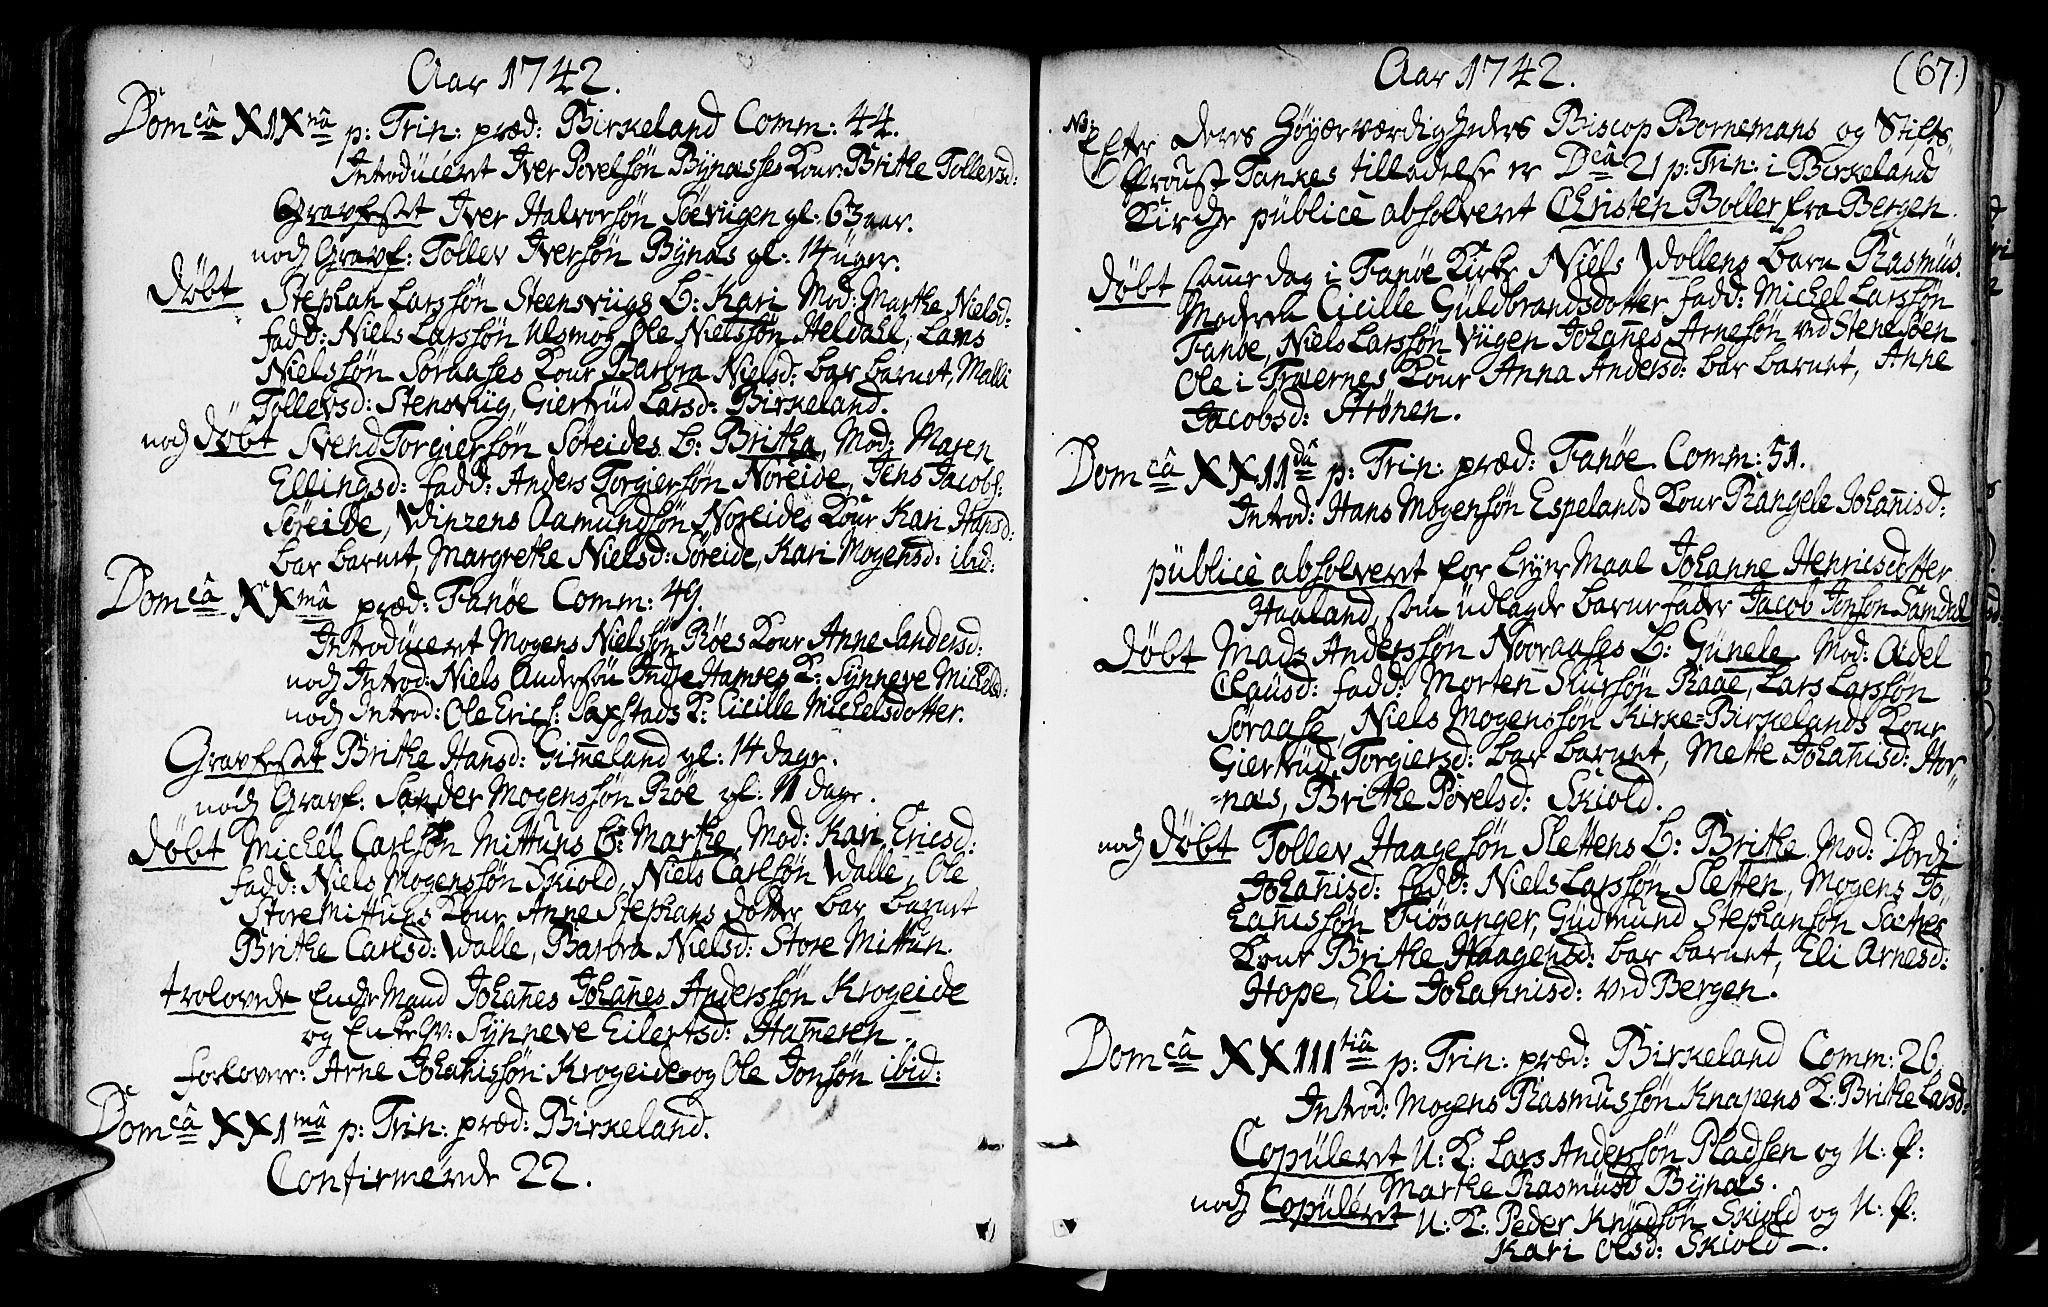 Aar 1742.
Domcâ XIXnâ p: Trin: præd: Birkeland Comm: 44.
Introduceret Iver Povelsøn Bynæsses Kone: Brithe Tollevsd:
Gravfestet Iver Halvorsøn Søevigen gl: 63 aar.
noch Gravf: Tollev Iversøn Bynæs gl: 14 uger.
Døbt Stephan Larssøn Steensviigs B: Kari Mod: Marthe Nielsd:
fadd: Niels Larssøn Ulsmog, Ole Nielssøn Heldahl, Lars
Nielssøn Søraases Kone Barbra Nielsd: bar barnet, Malli
Tollevsd: Stensviig, Giertrüd Larsd: Birkeland.
noch Døbt Svend Torgiersøn Søreides B: Britha, Mod: Maren
Ellingsd: fadd: Anders Torgiersøn Noreide, Jens Jacobs:
Søreide, Vinzens Aamundsøn Noreides Kone Kari Hansd:
bar barnet, Margrethe Nielsd: Søreide, Kari Mogensd: ibid:
Domcâ XXmâ præd: Fanøe Comm: 49.
Introduceret Mogens Nielssøn Røes Kone Anne Sandersd:
noch Introd: Niels Andersøn Indre Hamres K: Synneve Michelsd:
noch Introd: Ole Erics: Saxstads K: Cicille Michelsdotter.
Gravfestet Brithe Hansd: Gim̄eland gl: 14 dage.
noch Gravf: Sander Mogenssøn Røe gl: 11 dage.
Døbt Michel Carlsøn Mittuns B: Marthe, Mod: Kari Ericsd:
fadd: Niels Mogenssøn Skiold, Niels Carlsøn Valle, Ole
Store Mittuns Kone Anne Stephans dotter bar barnet
Brithe Carlsd: Valle, Barbra Nielsd: Store Mittun.
trolovede Enche Mand Johan̄es Johan̄es Anderssøn Krogeide
og Enke Qv: Synneve Eilertsd: Ham̄eren.
forlovere: Arne Johanissøn Krogeide og Ole Jonsøn ibid:
Domcâ XXImâ p: Trin: præd: Birkeland.
Confirmerede 22.
Aar 1742. (67.)
NB: Efter Deres Høyærværdigheders Biscop Bornemans og Stifts-
Proust Tankes tilladelse er Dcâ 21 p: Trin: i Birkelands
Kirche püblicè absolveret Christen Boller fra Bergen.
Døbt sam̄e dag i Fanøe Kirke Niels Vollens barn Rasmüs.
Moderen Cicille Güldbrandsdotter fadd: Michel Larssøn
Fanøe, Niels Larssøn Viigen Johan̄es Arnesøn ved Stenesøen
Ole i Træernes Kone Anna Andersd: bar barnet, Anne
Jacobsd: Strønen.
Domcâ XXIIdâ p: Trin: præd: Fanøe Comm: 51.
Introd: Hans Mogensøn Espelands Kone Rangele Johan̄isd:
püblicè absolveret for Leyer Maal Johanne Henricsdotter
Haaland, som üdlagde barnefader Jacob Jonsøn Samdal
Døbt Mads Anderssøn Nooraases B: Günele Mod: Adel
Claüsd: fadd: Morten Siursøn Raae, Lars Larssøn
Søraase, Niels Mogenssøn Kirke=Birkelands Kone
Giertrüd Torgiersd: bar barnet, Mette Johan̄isd: Hor-
-næs, Brithe Povelsd: Skiold.
noch Døbt Tollev Haagesøn Slettens B: Brithe Mod: Dordi
Johan̄isd: fadd: Niels Larssøn Sletten, Mogens Jo-
hanissøn Fiøsanger, Güdmünd Stephansøn Sætres
Kone Brithe Haagensd: bar barnet, Eli Arnesd:
Hope, Eli Johannisd: ved Bergen.
Domcâ XXIIItiâ p: Trin: præd: Birkeland Comm: 26.
Introd: Mogens Rasmussøn Knapens K: Brithe Larsd:
Copüleret U: K: Lars Anderssøn Pladsen og U: P:
Marthe Rasmüsd Bynæs.
noch Copüleret U: K: Peder Knüdsøn Skiold og U: P:
Kari Olsd: Skiold —.